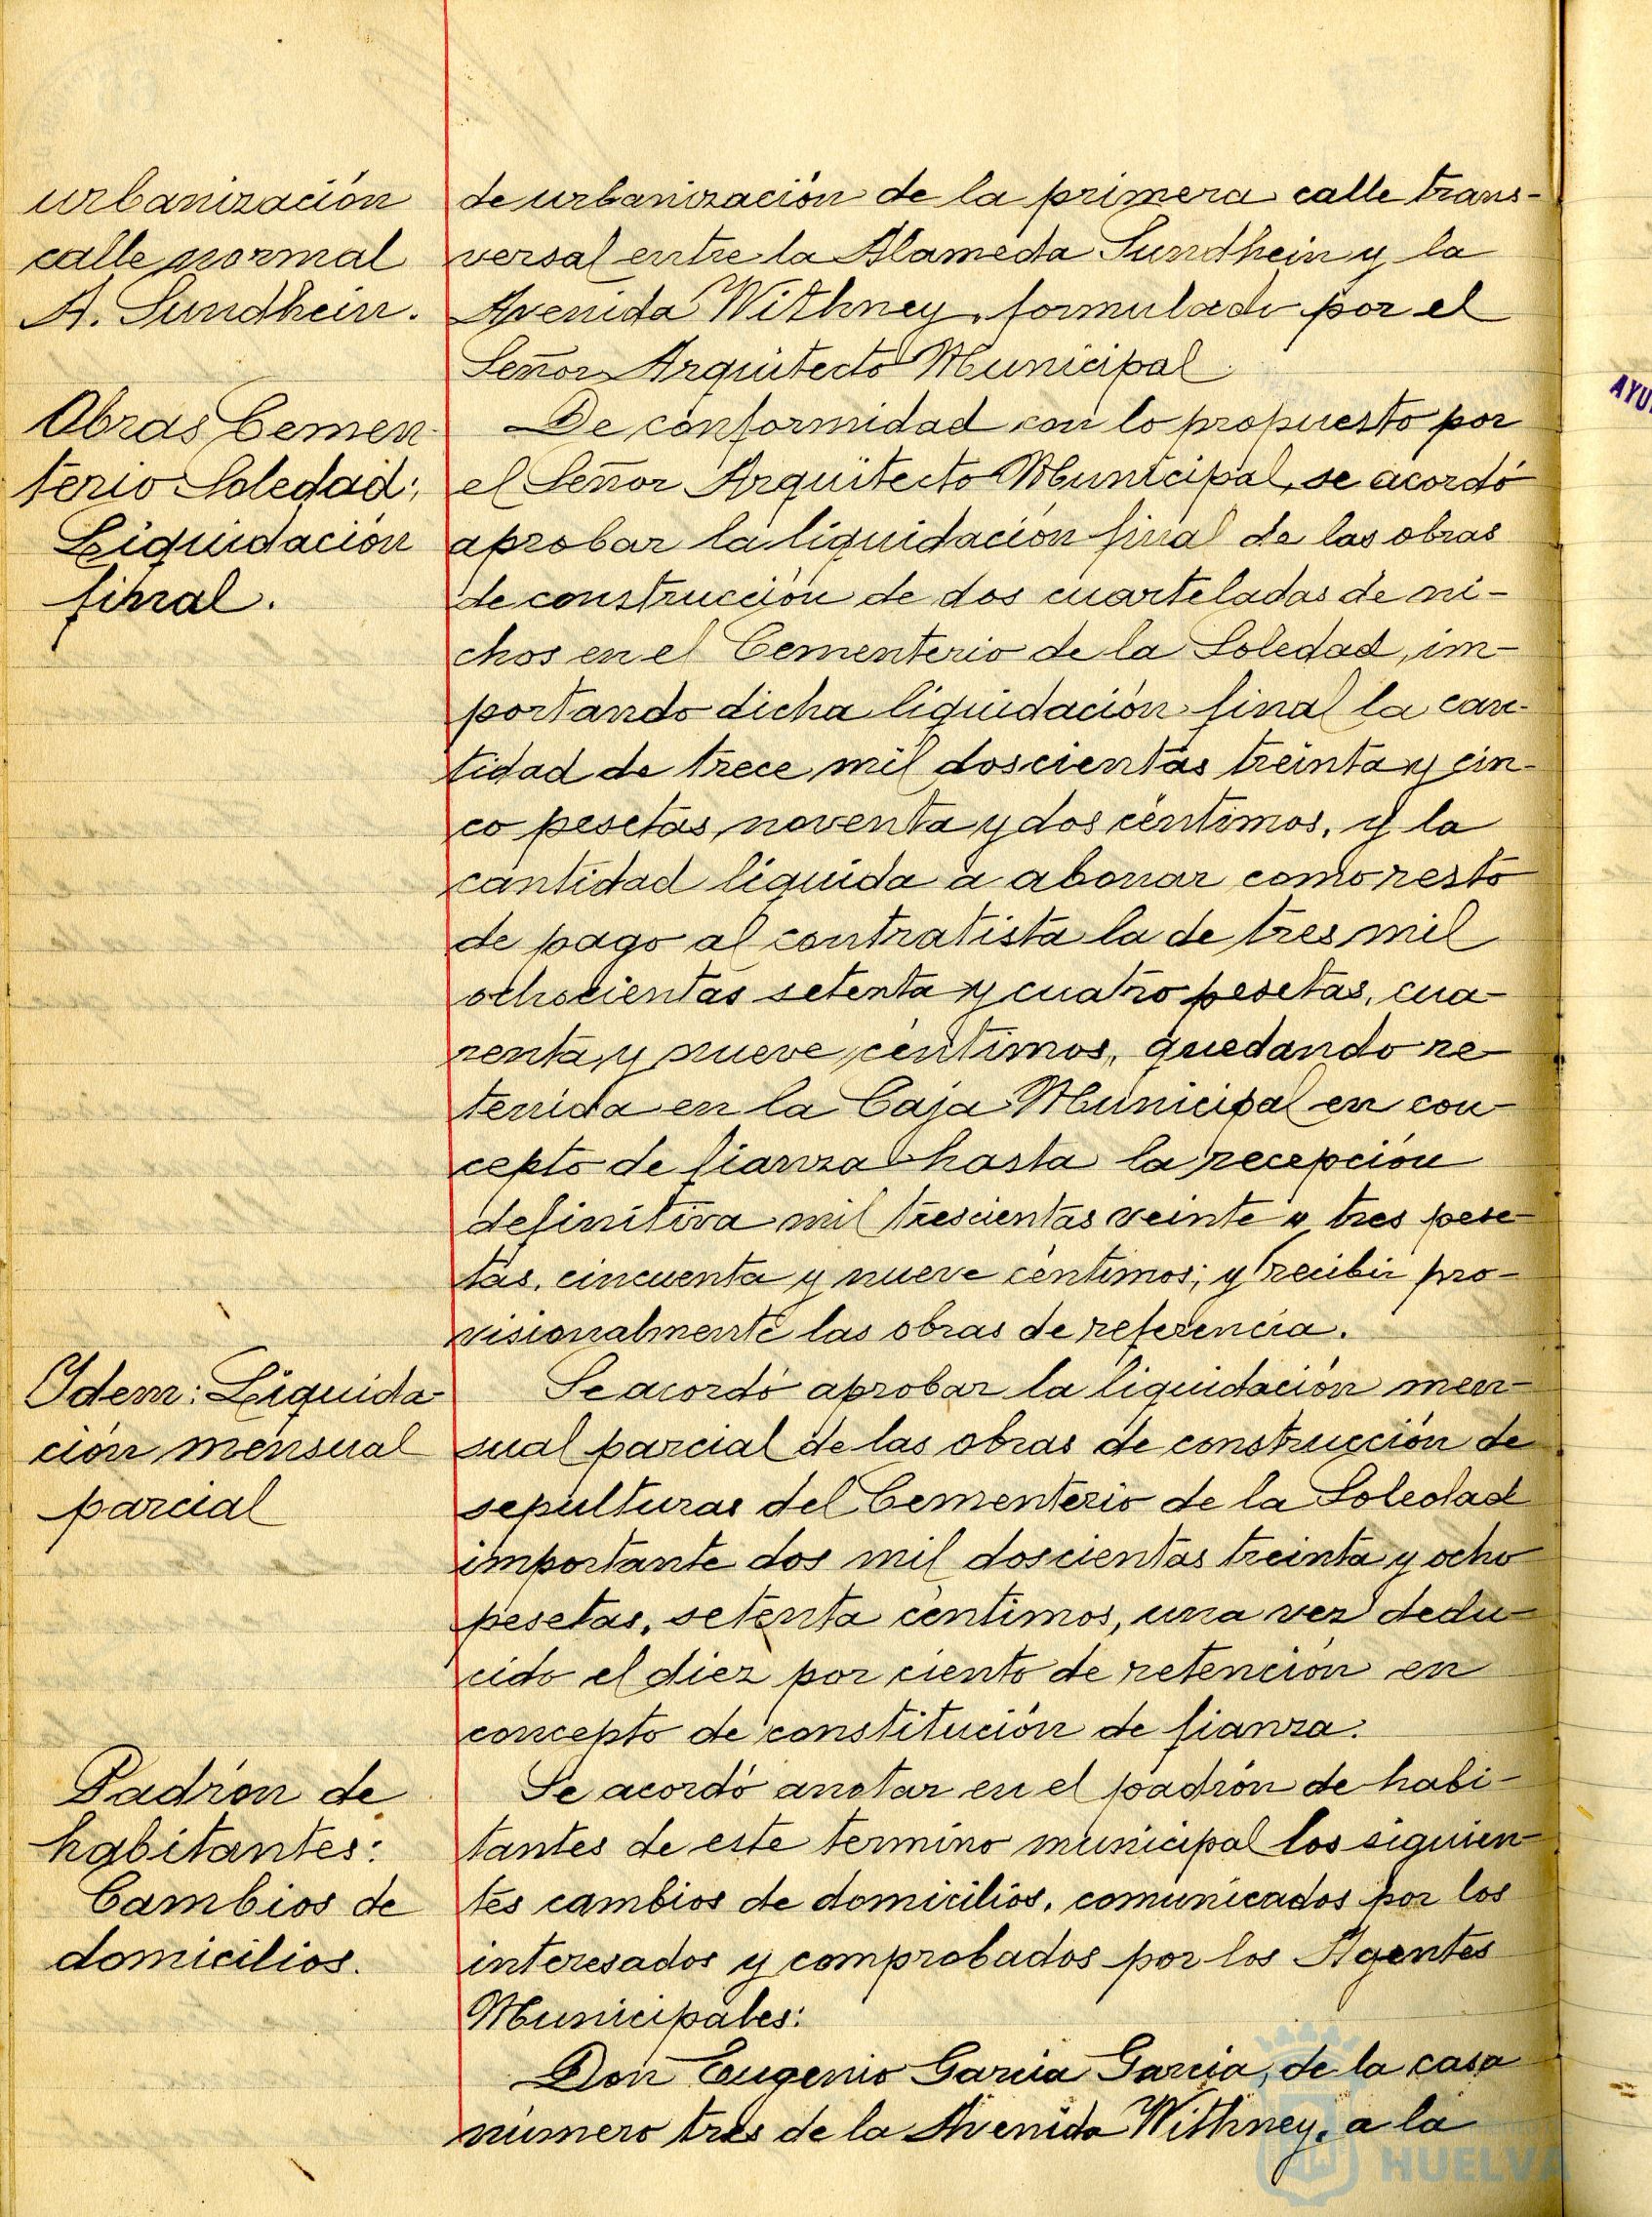 urbanización
calle normal
A. Sundhein.
de urbanización de la primera calle trans-
versal entre la Alameda Sundhein y la
Avenida Withney, formulado por el
Señor Arquitecto Municipal.
Obras Cemen-
terio Soledad:
Liquidación
final.
De conformidad con lo propuesto por
el Señor Arquitecto Municipal, se acordó
aprobar la liquidación final de las obras
de construcción de dos cuarteladas de ni-
chos en el Cementerio de la Soledad, im-
portando dicha liquidación final la can-
tidad de trece mil doscientas treinta y cin-
co pesetas, noventa y dos céntimos, y la
cantidad líquida a abonar como resto
de pago al contratista la de tres mil
ochocientas setenta y cuatro pesetas, cua-
renta y nueve céntimos, quedando re-
tenida en la Caja Municipal en con-
cepto de fianza hasta la recepción
definitiva mil trescientas veinte y tres pese-
tas, cincuenta y nueve céntimos; y recibir pro-
visionalmente las obras de referencia.
Idem: Liquida-
ción mensual
parcial
Se acordó aprobar la liquidación men-
sual parcial de las obras de construcción de
sepulturas del Cementerio de la Soledad
importante dos mil doscientas treinta y ocho
pesetas, setenta céntimos, una vez dedu-
cido el diez por ciento de retención en
concepto de constitución de fianza.
Padrón de
habitantes:
Cambios de
domicilios.
Se acordó anotar en el padrón de habi-
tantes de este termino municipal los siguien-
tes cambios de domicilios, comunicados por los
interesados y comprobados por los Agentes
Municipales:
Don Eugenio Garcia Garcia, de la casa
número tres de la Avenida Withney, a la
HUELVA
AYU